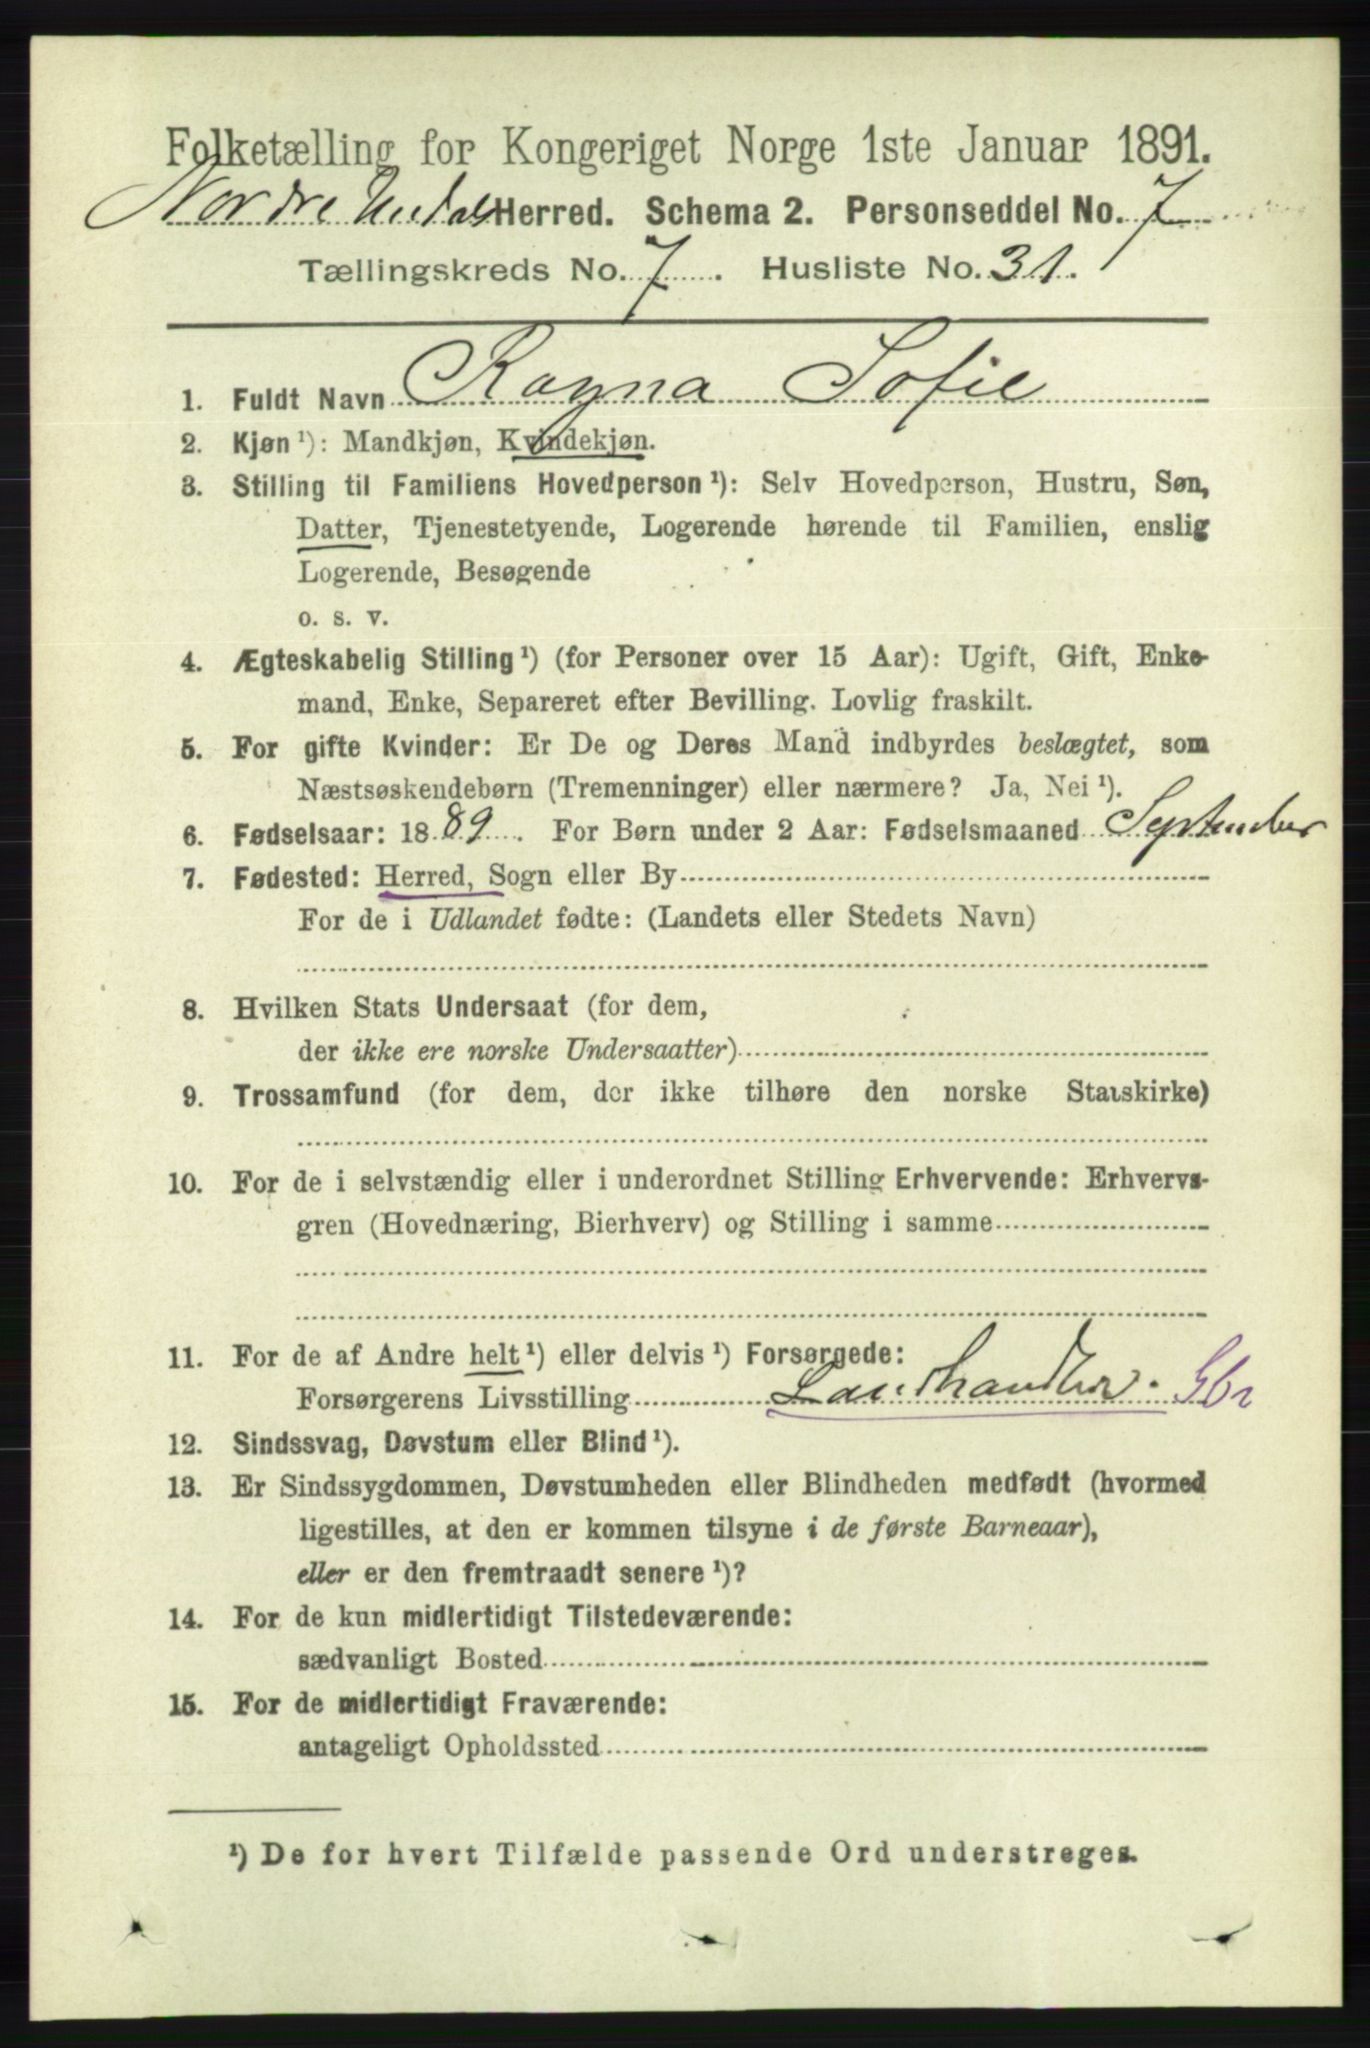 Folketælling for Kongeriget Norge 1ste Januar 1891.
Nordre Undals Herred. Schema 2. Personseddel No. 7
Tællingskreds No. 7. Husliste No. 31.
1. Fuldt Navn Ragna Sofie
2. Kjøn ¹): Mandkjøn, Kvindekjøn.
3. Stilling til Familiens Hovedperson ¹): Selv Hovedperson, Hustru, Søn,
Datter, Tjenestetyende, Logerende hørende til Familien, enslig
Logerende, Besøgende
o. s. v.
4. Ægteskabelig Stilling ¹) (for Personer over 15 Aar): Ugift, Gift, Enke-
mand, Enke, Separeret efter Bevilling. Lovlig fraskilt.
5. For gifte Kvinder: Er De og Deres Mand indbyrdes beslægtet, som
Næstsøskendebørn (Tremenninger) eller nærmere? Ja, Nei ¹).
6. Fødselsaar: 1889. For Børn under 2 Aar: Fødselsmaaned September
7. Fødested: Herred, Sogn eller By
For de i Udlandet fødte: (Landets eller Stedets Navn)
8. Hvilken Stats Undersaat (for dem,
der ikke ere norske Undersaatter)
9. Trossamfund (for dem, der ikke tilhøre den norske Statskirke)
10. For de i selvstændig eller i underordnet Stilling Erhvervende: Erhvervs-
gren (Hovednæring, Bierhverv) og Stilling i samme
11. For de af Andre helt ¹) eller delvis ¹) Forsørgede:
Forsørgerens Livsstilling Landhandler.
12. Sindssvag, Døvstum eller Blind ¹).
13. Er Sindssygdommen, Døvstumheden eller Blindheden medfødt (hvormed
ligestilles, at den er kommen tilsyne i de første Barneaar),
eller er den fremtraadt senere ¹)?
14. For de kun midlertidigt Tilstedeværende:
sædvanligt Bosted
15. For de midlertidigt Fraværende:
antageligt Opholdssted
¹) De for hvert Tilfælde passende Ord understreges.